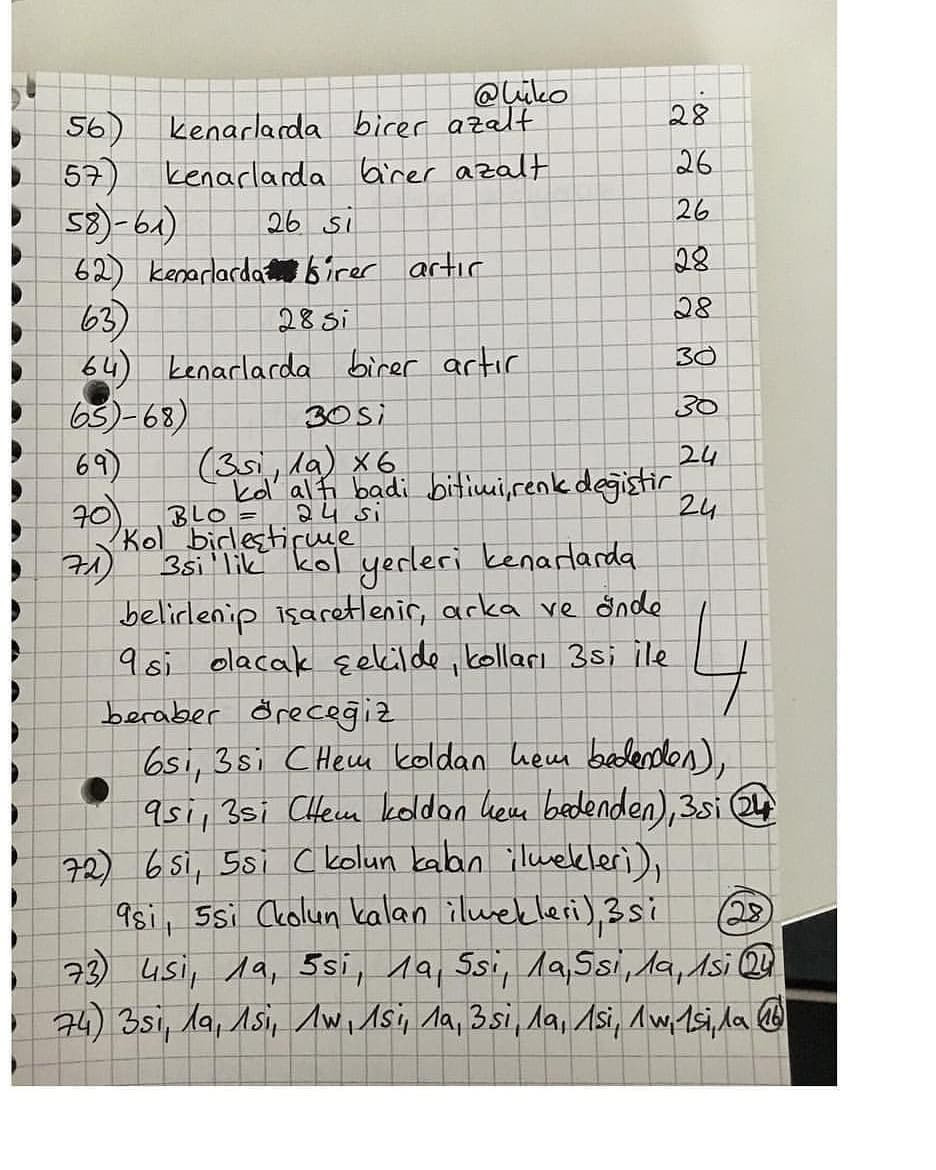 @hiko
56) kenarlarda birer azalt 28
57) kenarlarda birer azalt 26
58)-61) 26 si 26
62) kenarlarda birer artır 28
63) 28 si 28
64) kenarlarda birer artır 30
65)-68) 30 si 30
69) (3si, 1a) x6 24
kol altı badi bitimi, renk değiştir
70) BLO = 24 si 24
Kol birleştirme
71) 3si'lik kol yerleri kenarlarda
belirlenip işaretlenir, arka ve önde
9si olacak şekilde, kolları 3si ile
beraber öreceğiz
4
6si, 3si (Hem koldan hem bedenden),
9si, 3si (Hem koldan hem bedenden), 3si 24
72) 6si, 5si (kolun kalan ilmekleri),
9si, 5si (kolun kalan ilmekleri), 3si 28
73) 4si, 1a, 5si, 1a, 5si, 1a, 5si, 1a, 1si 24
74) 3si, 1a, 1si, 1w, 1si, 1a, 3si, 1a, 1si, 1w, 1si, 1a 16